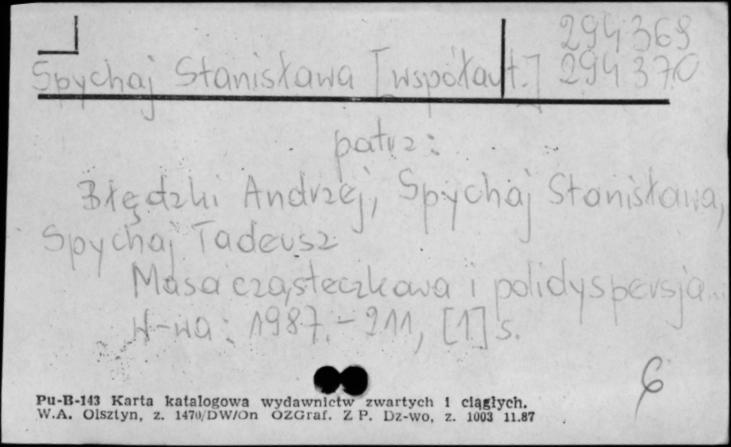 294368
Spychaj Stanisława [współaut.] 294370
patrz:
Błędzki Andrzej, Spychaj Stanisława,
Spychaj Tadeusz
Masa cząsteczkowa i polidyspersja...
W-wa: 1987.- 211, [1] s.
6
Pu-B-143 Karta katalogowa wydawnictw zwartych i ciągłych.
W.A. Olsztyn, z. 1470/DW/On OZGraf. Z P. Dz-wo, z. 1003 11.87